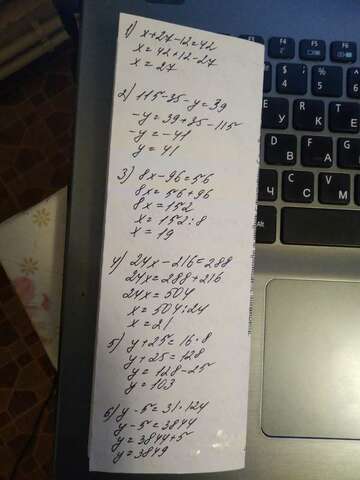 1) x+27-12=42
x=42+12-27
x=27
2) 115-35-y=39
-y=39+35-115
-y=-41
y=41
3) 8x-96=56
8x=56+96
8x=152
x=152:8
x=19
4) 24x-216=288
24x=288+216
24x=504
x=504:24
x=21
5) y+25=16·8
y+25=128
y=128-25
y=103
6) y-5=31·124
y-5=3844
y=3844+5
y=3849